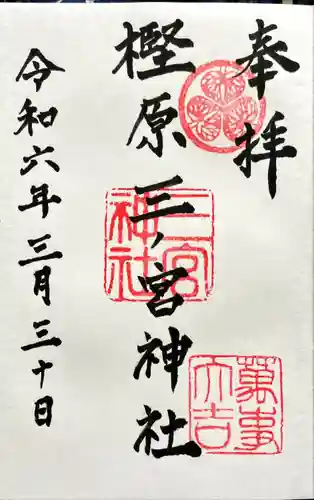 奉拝
樫原三ノ宮神社
令和六年三月三十日
三宮
神社
萬事
大吉